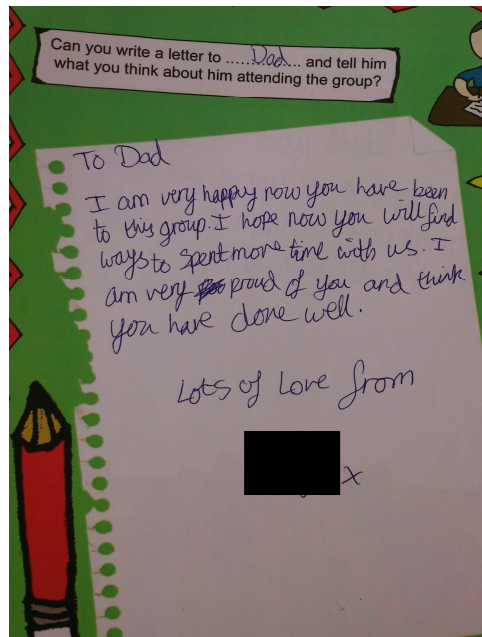 Can you write a letter to .....Dad... and tell him
what you think about him attending the group?
To Dad
I am very happy now you have been
to this group. I hope now you will find
ways to spent more time with us. I
am very proud of you and think
you have done well.
Lots of Love from
x